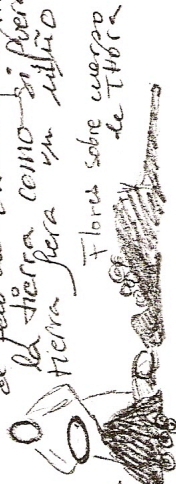 la tierra como si fuera
tierra fuera un niño
Flores sobre cuerpo
de tierra